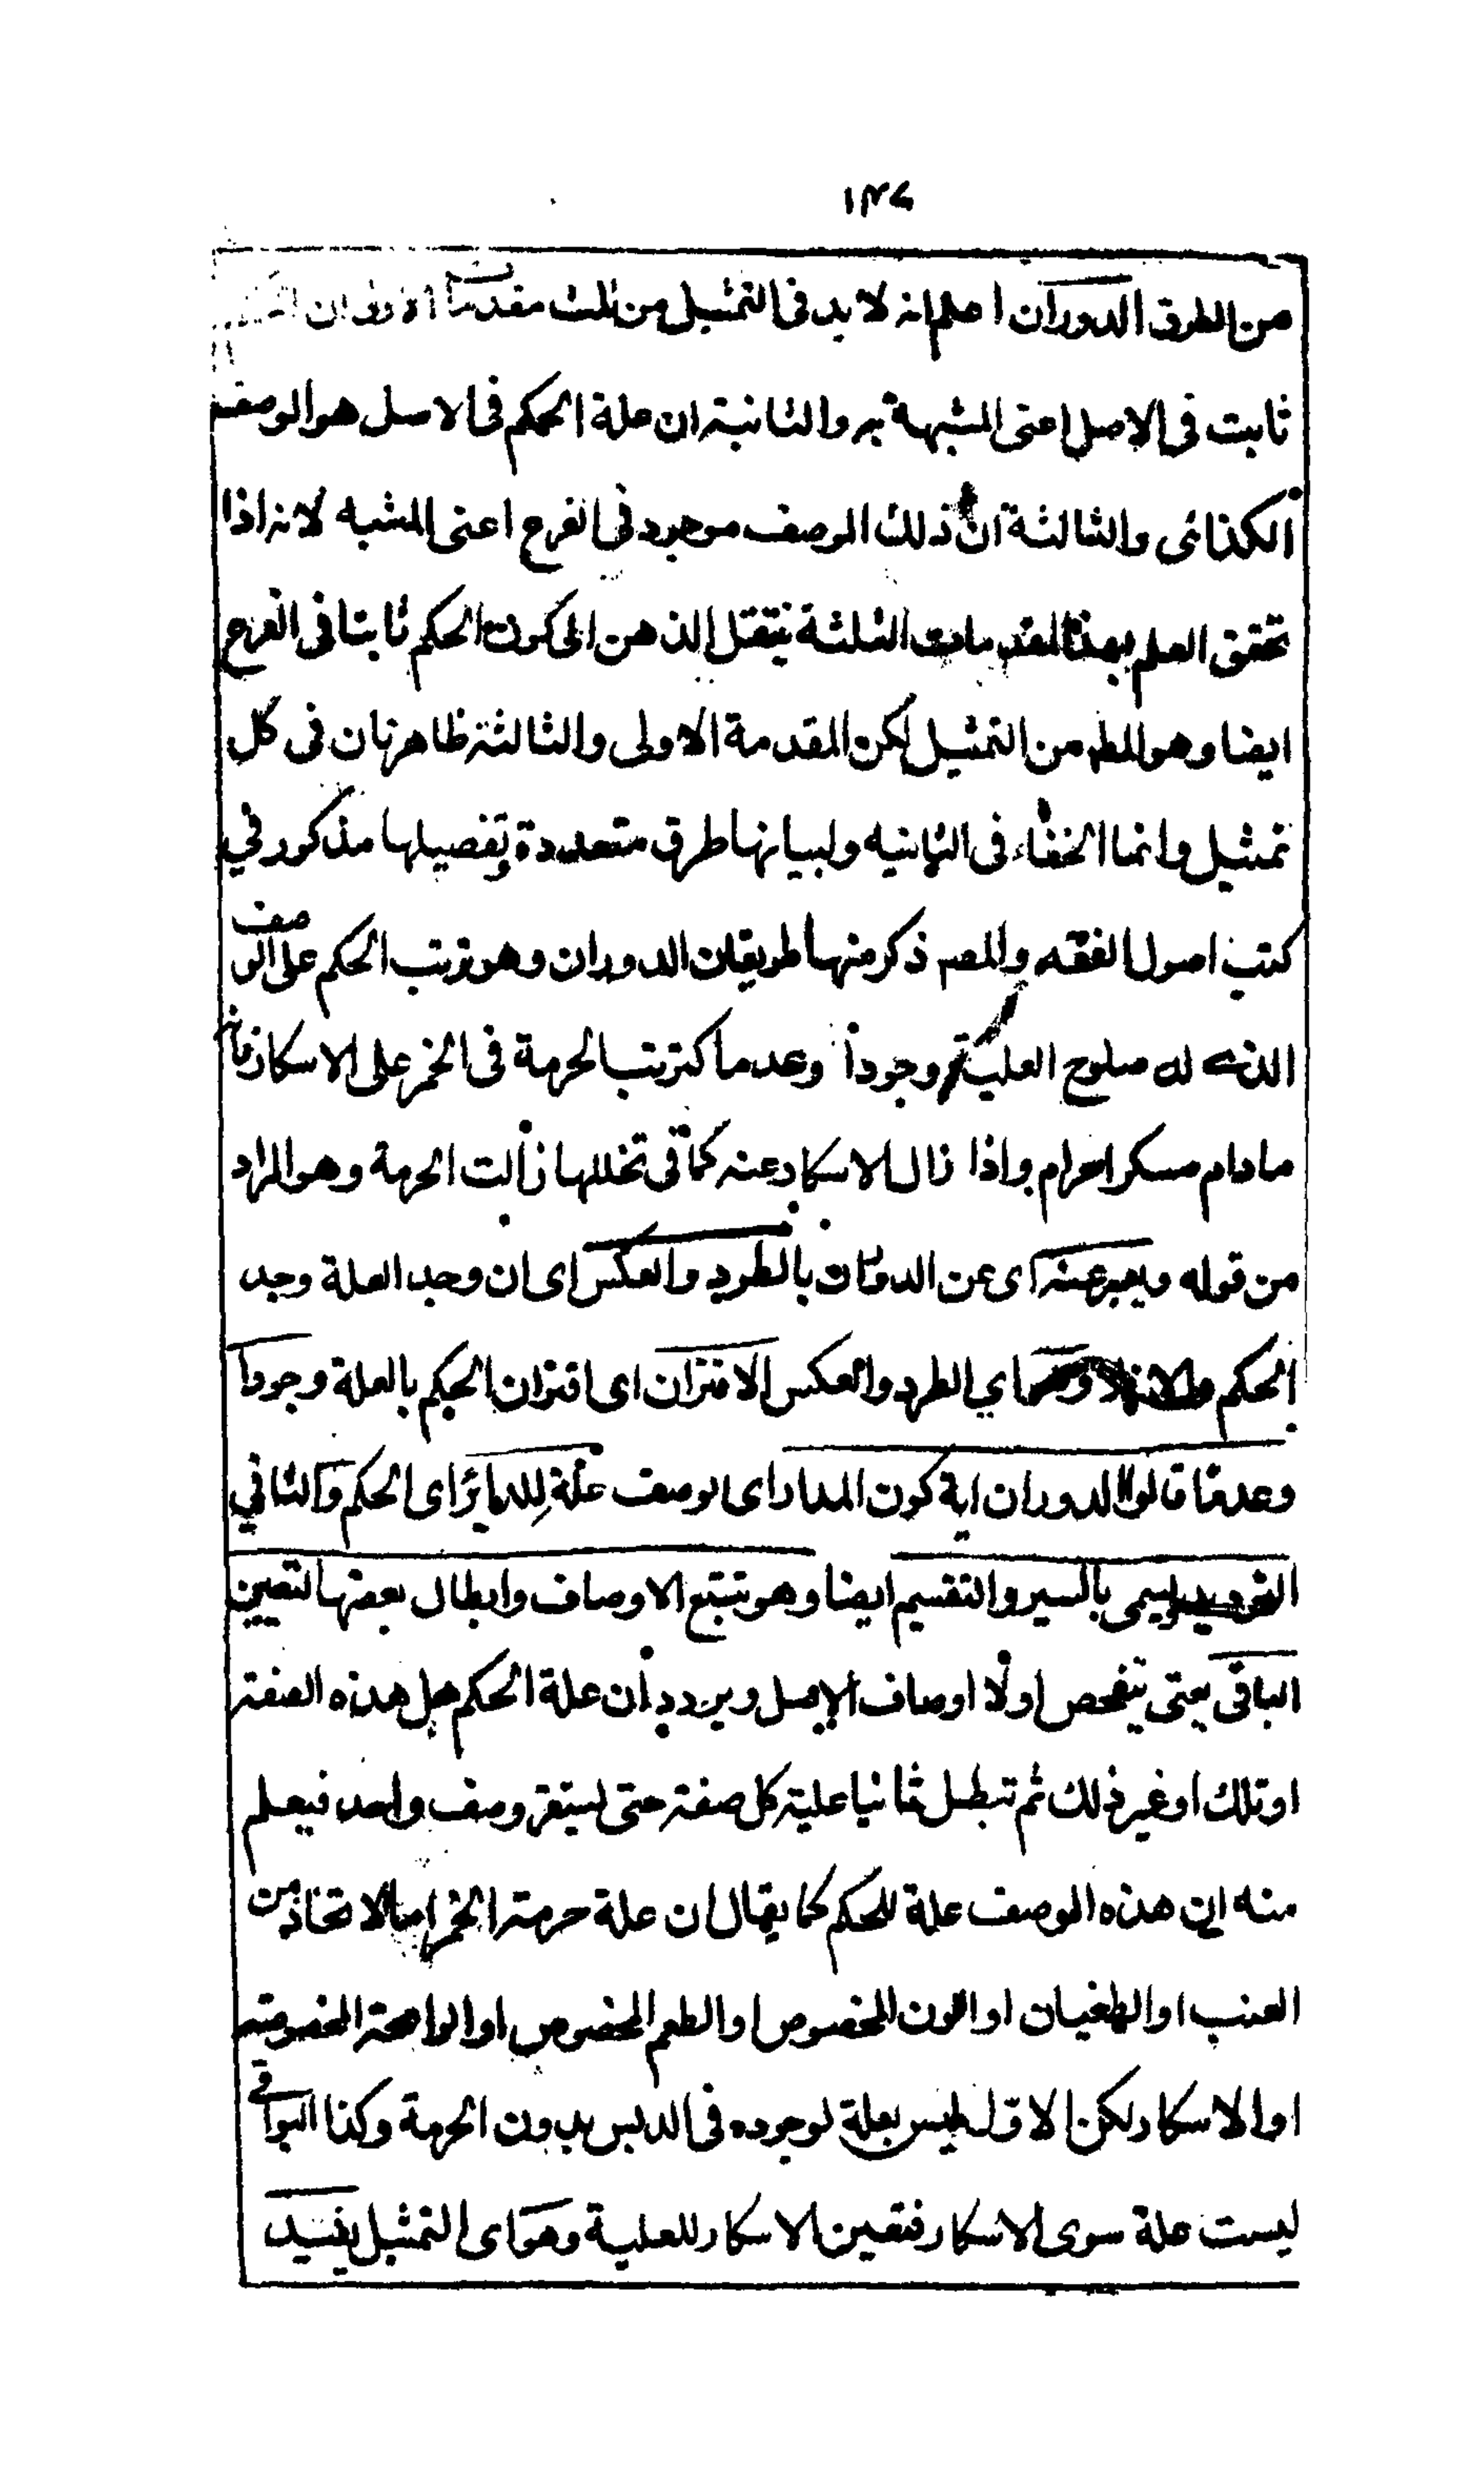 ١٣٧
من الطرق الدوران اعلم انه لا بد فى التمثيل من ثلث مقدمات الاولى ان
ثابت فى الاصل اعنى المشبهة به والثانية ان علة الحكم فى الاصل هو الوصف
الكذائى والثالثة ان ذلك الوصف موجود فى الفرع اعنى المشبه لانه اذا
تحقق العلم بهذا المقدمات الثلثة ينتقل الذهن الى كون الحكم ثابتا فى الفرع
ايضا وهو المط من التمثيل لكن المقدمة الاولى والثالثة ظاهرتان فى كل
تمثيل وانما الخفاء فى الثانيه ولبيانها طرق متعددة وتفصيلها مذكور في
كتب اصول الفقه والمصه ذكر منها طريقان الدوران وهو ترتب الحكم على الوصف
الذى له صلوح العلية وجوداً وعدما كترتب الحرمة فى الخمر على الاسكار فانه
مادام مسكرا حرام واذا زال الاسكار عنه كما فى تخللها زالت الحرمة وهو المراد
من قوله ويعبر عنه اى عن الدوران بالطرد والعكس اى ان وجد العلة وجد
الحكم اي الطرد والعكس الاقتران اى اقتران الحكم بالعلة وجودا
وعدما قالوا الدوران اية كون المدار اى لوصف علة للدايراى الحكم والثاني
الترديد ويسمى بالسير والتقسيم ايضا وهو تتبع الاوصاف وابطال بعضها لتعيين
الباقى يعنى يتفحص اولا اوصاف الاصل ويردد ان علة الحكم هل هذه الصفة
او تلك او غير ذلك ثم تبطل ثانيا علية كل صفة حتى ليستقر وصف واحد فيعلم
منه ان هذه الوصف علة للحكم كما يقال ان علة حرمة الخمر اما الاتخاذ من
العنب او الطغيان او اللون المخصوص او الطعم المخصوص او الراىحة المخصوصة
او الاسكار لكن الاول ليس بعلة لوجوده فى الدبس بدون الحرمة وكذا البواقى
ليست علة سوى الاسكار فتعين الاسكار للعلية وهو اى التمثيل يفيد